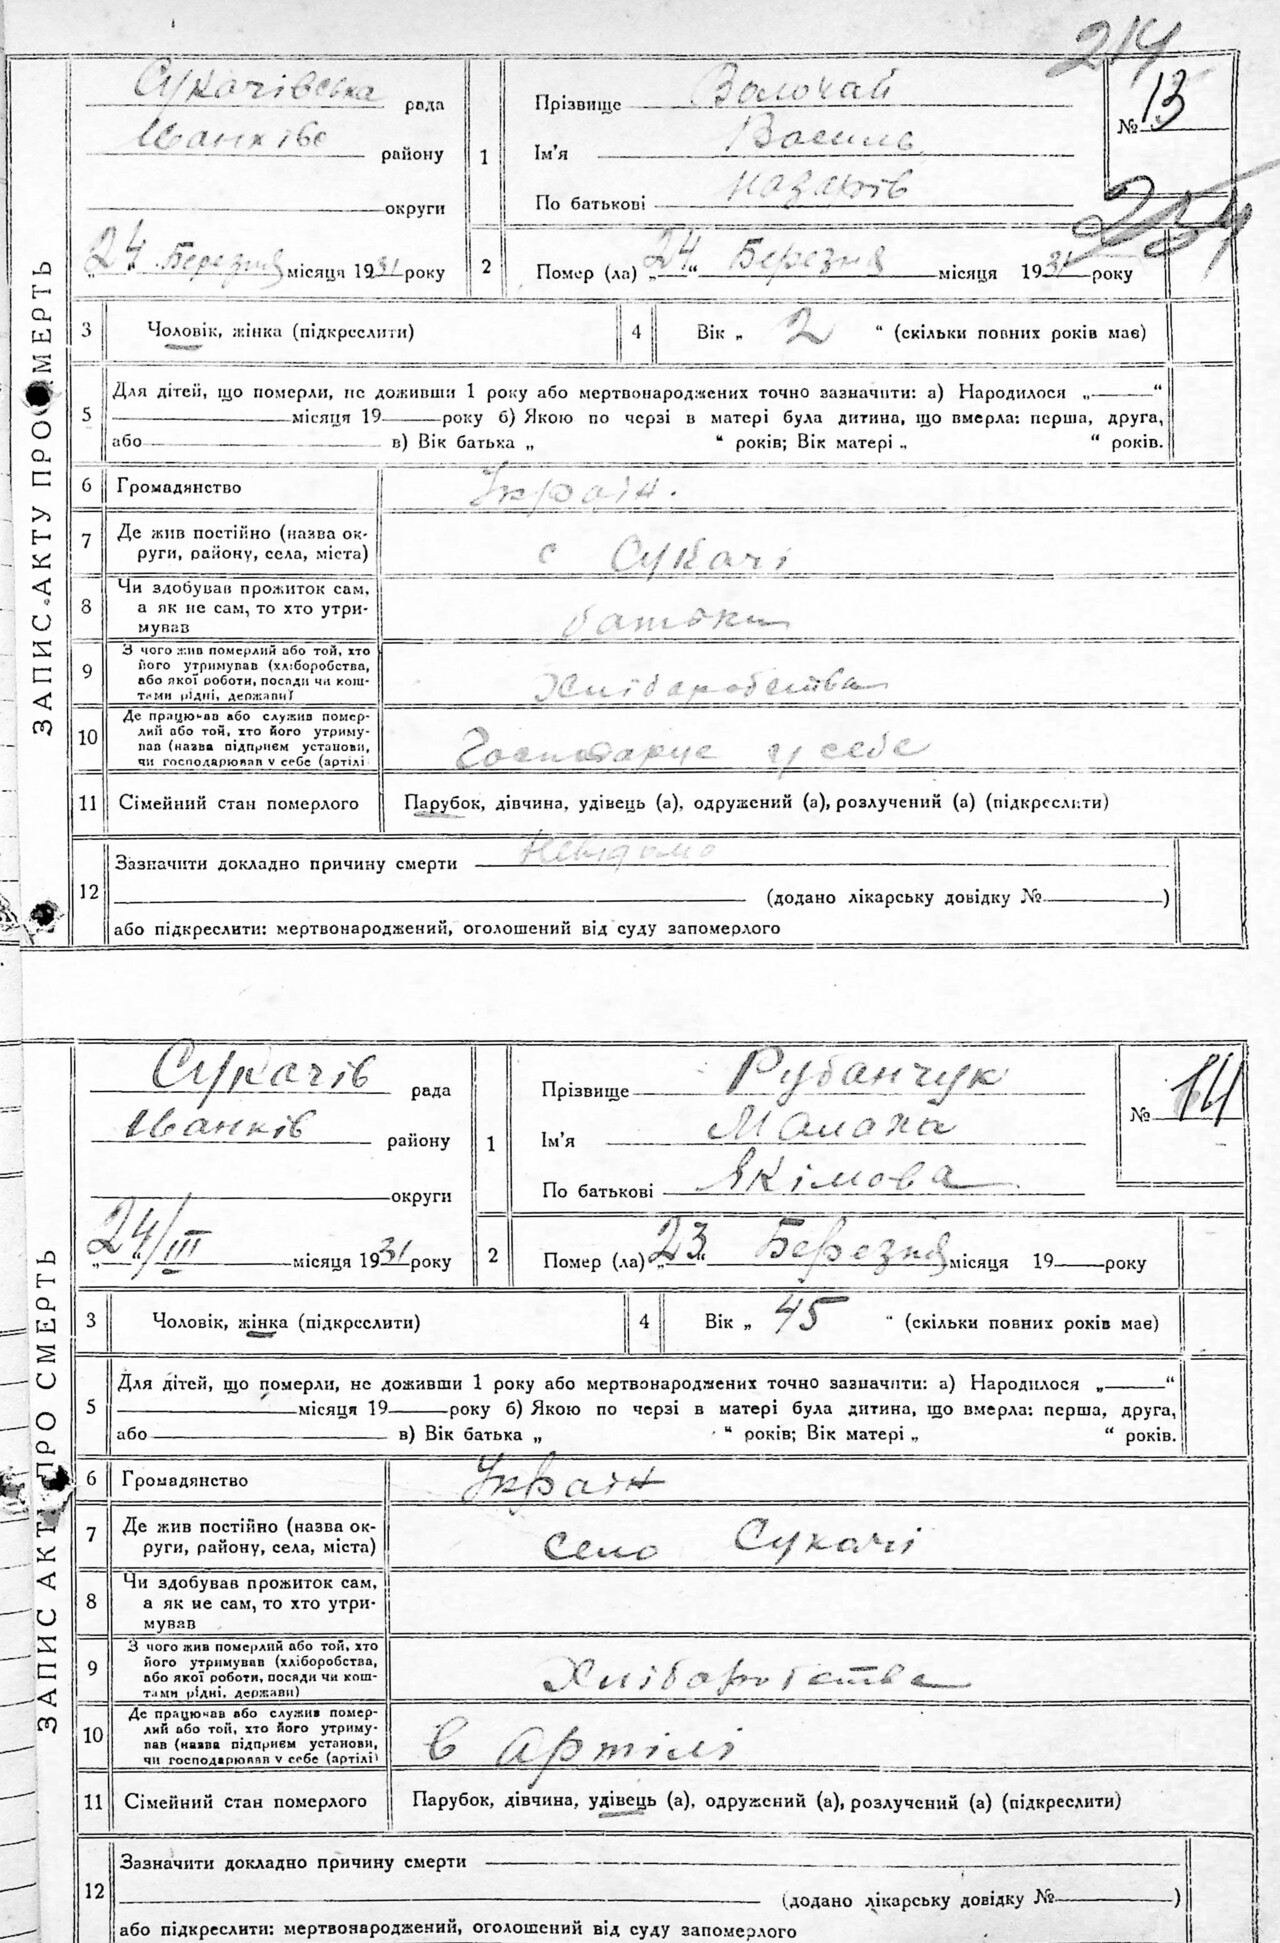 214
ЗАПИС АКТУ ПРО СМЕРТЬ
Сукачівська рада
Іванків району
округи
„24“ Березня місяця 1931 року
1
Прізвище Волочай
Ім'я Василь
По батькові Назарів
№ 13
254
2
Помер (ла) „24“ Березня місяця 1931 року
3 Чоловік, жінка (підкреслити)
4 Вік „ 2 “ (скільки повних років має)
5
Для дітей, що померли, не доживши 1 року або мертвонароджених точно зазначити: а) Народилося „ “
місяця 19 року б) Якою по черзі в матері була дитина, що вмерла: перша, друга,
або в) Вік батька „ “ років; Вік матері „ “ років.
6 Громадянство Україн.
7
Де жив постійно (назва ок-
руги, району, села, міста)
с Сукачі
8
Чи здобував прожиток сам,
а як не сам, то хто утри-
мував
батьки
9
З чого жив померлий або той, хто
його утримував (хліборобства,
або якої роботи, посади чи кош-
тами рідні, держави)
Хліборобства
10
Де працював або служив помер-
лий або той, хто його утриму-
вав (назва підприєм установи,
чи господарював у себе (артілі
Господарує у себе
11 Сімейний стан померлого Парубок, дівчина, удівець (а), одружений (а), розлучений (а) (підкреслити)
12
Зазначити докладно причину смерти Невідомо
(додано лікарську довідку № )
або підкреслити: мертвонароджений, оголошений від суду запомерлого
ЗАПИС АКТУ ПРО СМЕРТЬ
Сукачів рада
Іванків району
округи
„24/III місяця 1931 року
1
Прізвище Рубанчук
Ім'я Малаха
По батькові Якімова
№ 14
2
Помер (ла) „23“ Березня місяця 19 року
3 Чоловік, жінка (підкреслити)
4 Вік „ 45 “ (скільки повних років має)
5
Для дітей, що померли, не доживши 1 року або мертвонароджених точно зазначити: а) Народилося „ “
місяця 19 року б) Якою по черзі в матері була дитина, що вмерла: перша, друга,
або в) Вік батька „ “ років; Вік матері „ “ років.
6 Громадянство Україн
7
Де жив постійно (назва ок-
руги, району, села, міста)
село Сукачі
8
Чи здобував прожиток сам,
а як не сам, то хто утри-
мував
9
З чого жив померлий або той, хто
його утримував (хліборобства,
або якої роботи, посади чи кош-
тами рідні, держави)
Хліборобства
10
Де працював або служив помер-
лий або той, хто його утриму-
вав (назва підприєм установи,
чи господарював у себе (артілі)
в артілі
11 Сімейний стан померлого Парубок, дівчина, удівець (а), одружений (а), розлучений (а) (підкреслити)
12
Зазначити докладно причину смерти
(додано лікарську довідку № )
або підкреслити: мертвонароджений, оголошений від суду запомерлого